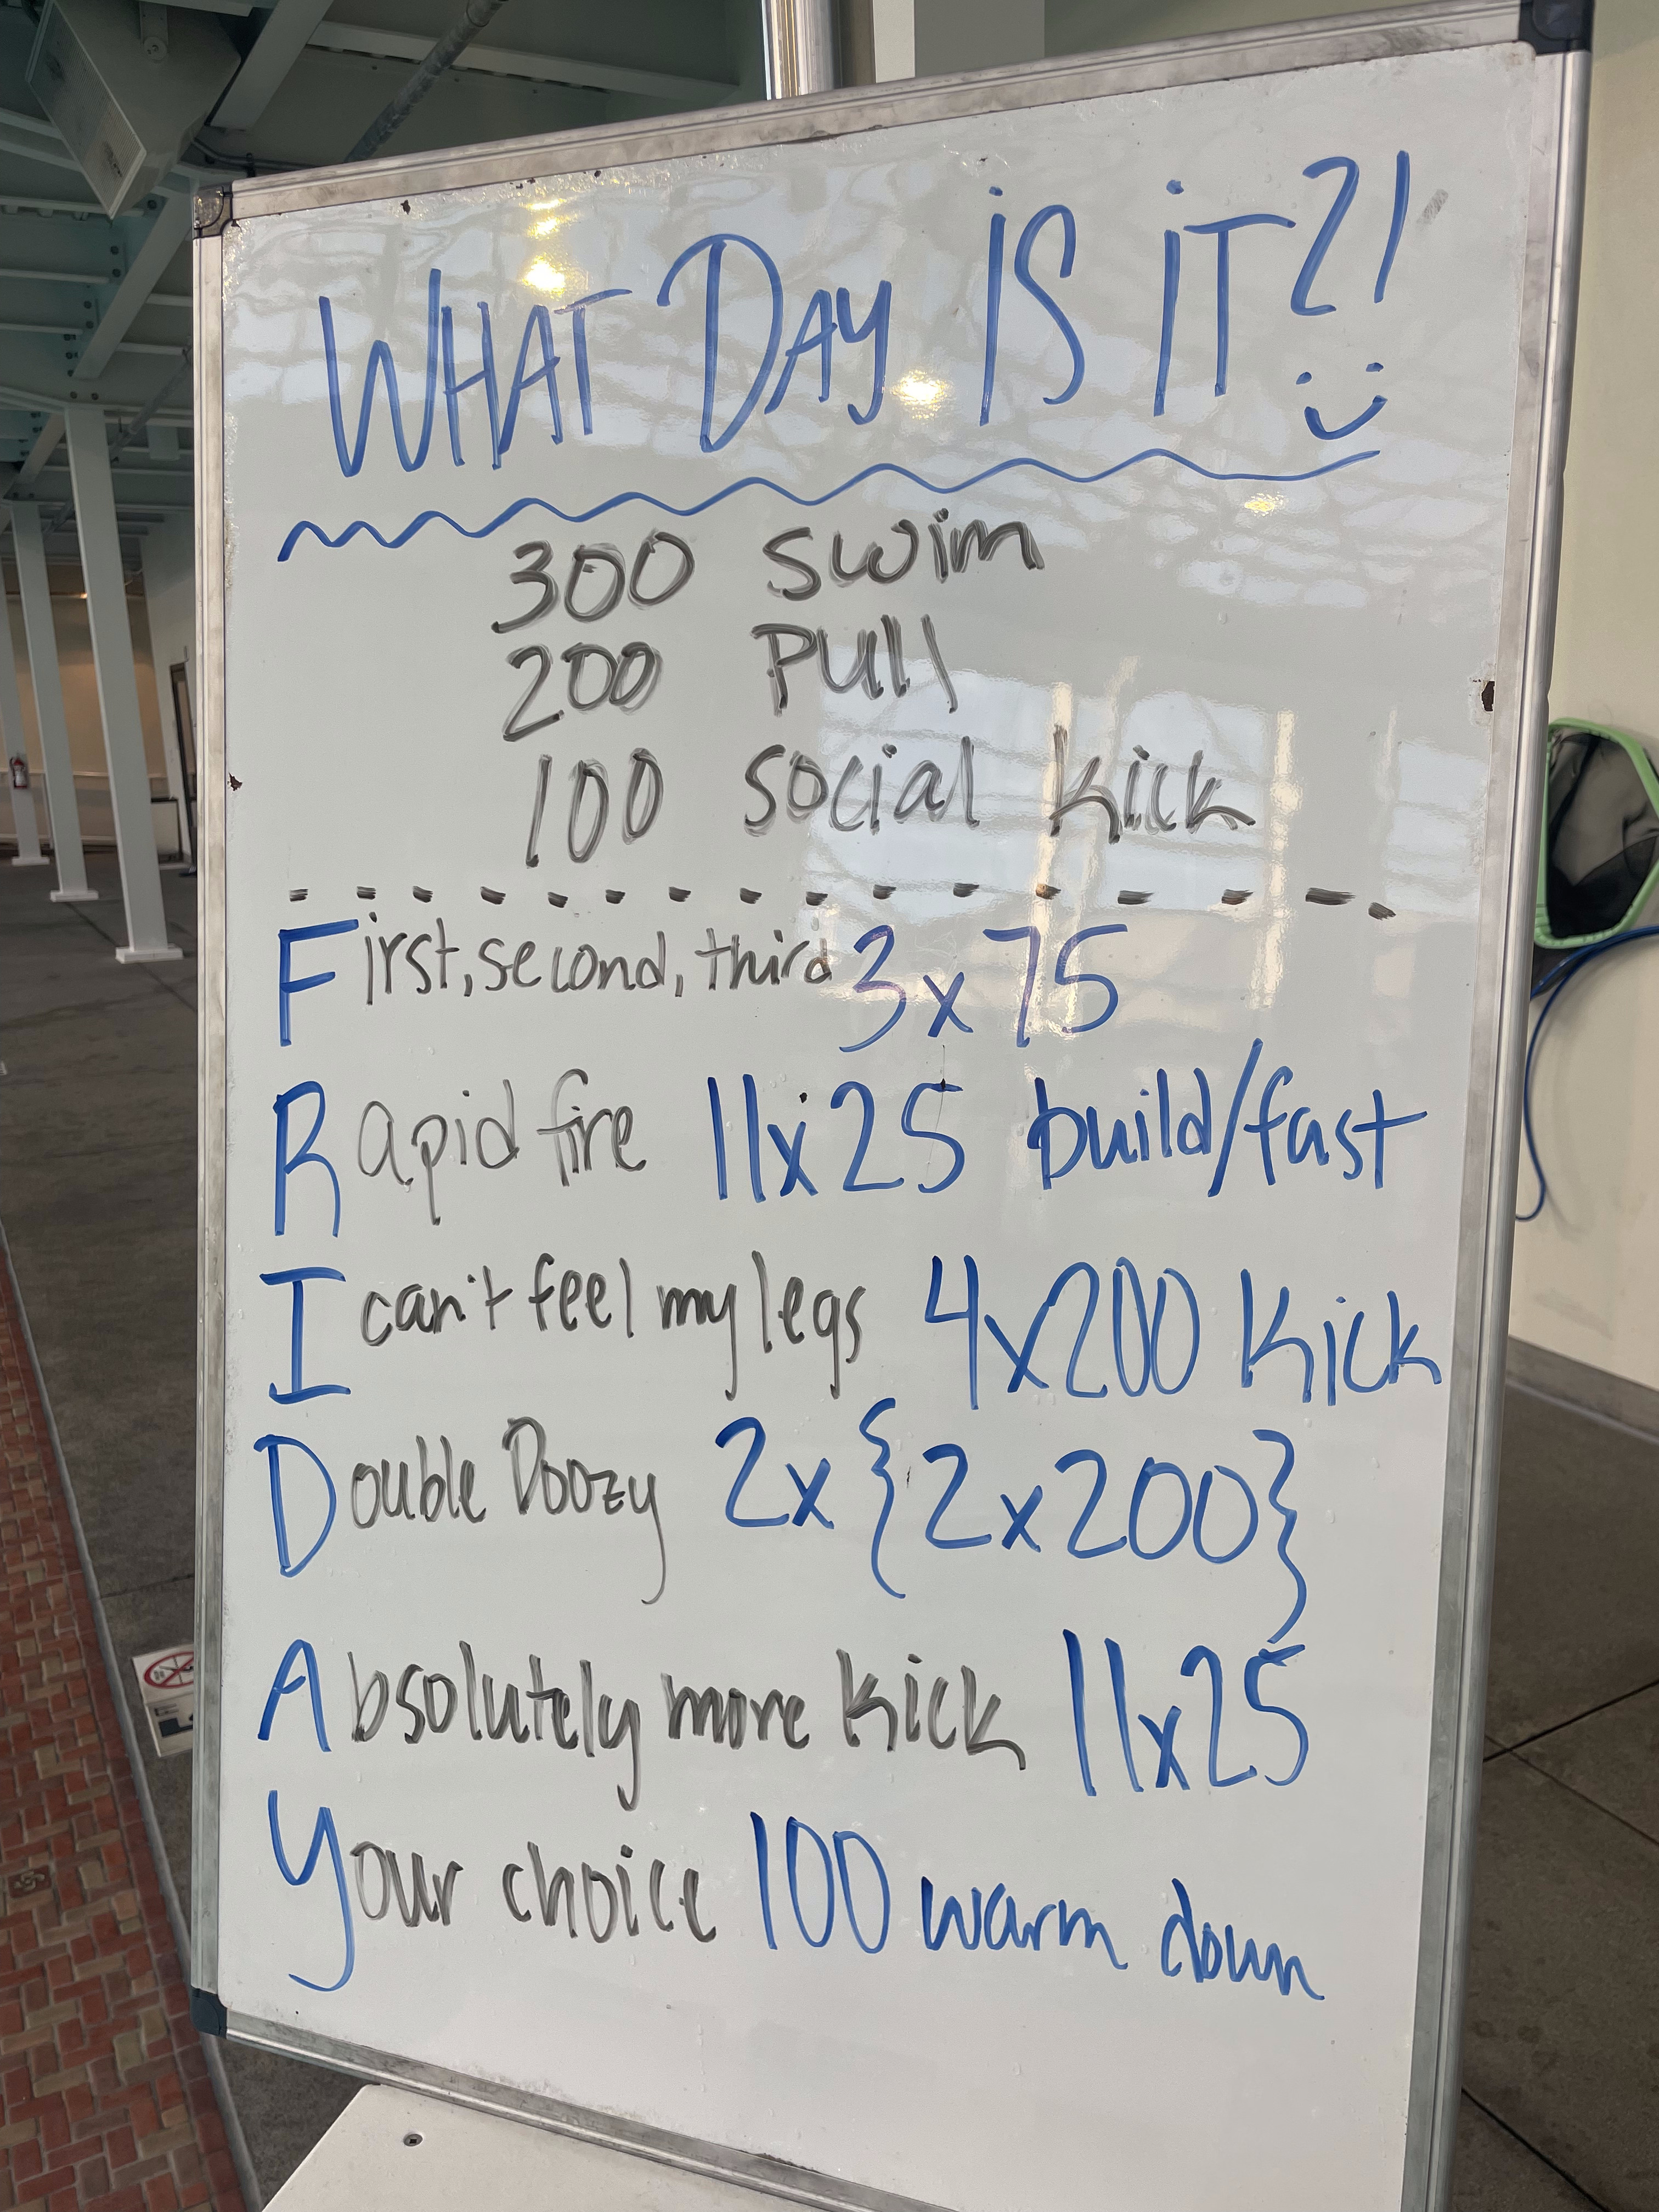 WHAT DAY IS IT?!
300 Swim
200 Pull
100 Social Kick
First, second, third 3x75
Rapid fire 11x25 build/fast
I can't feel my legs 4x200 Kick
Double Doozy 2x{2x200}
Absolutely more Kick 11x25
Your choice 100 warm down